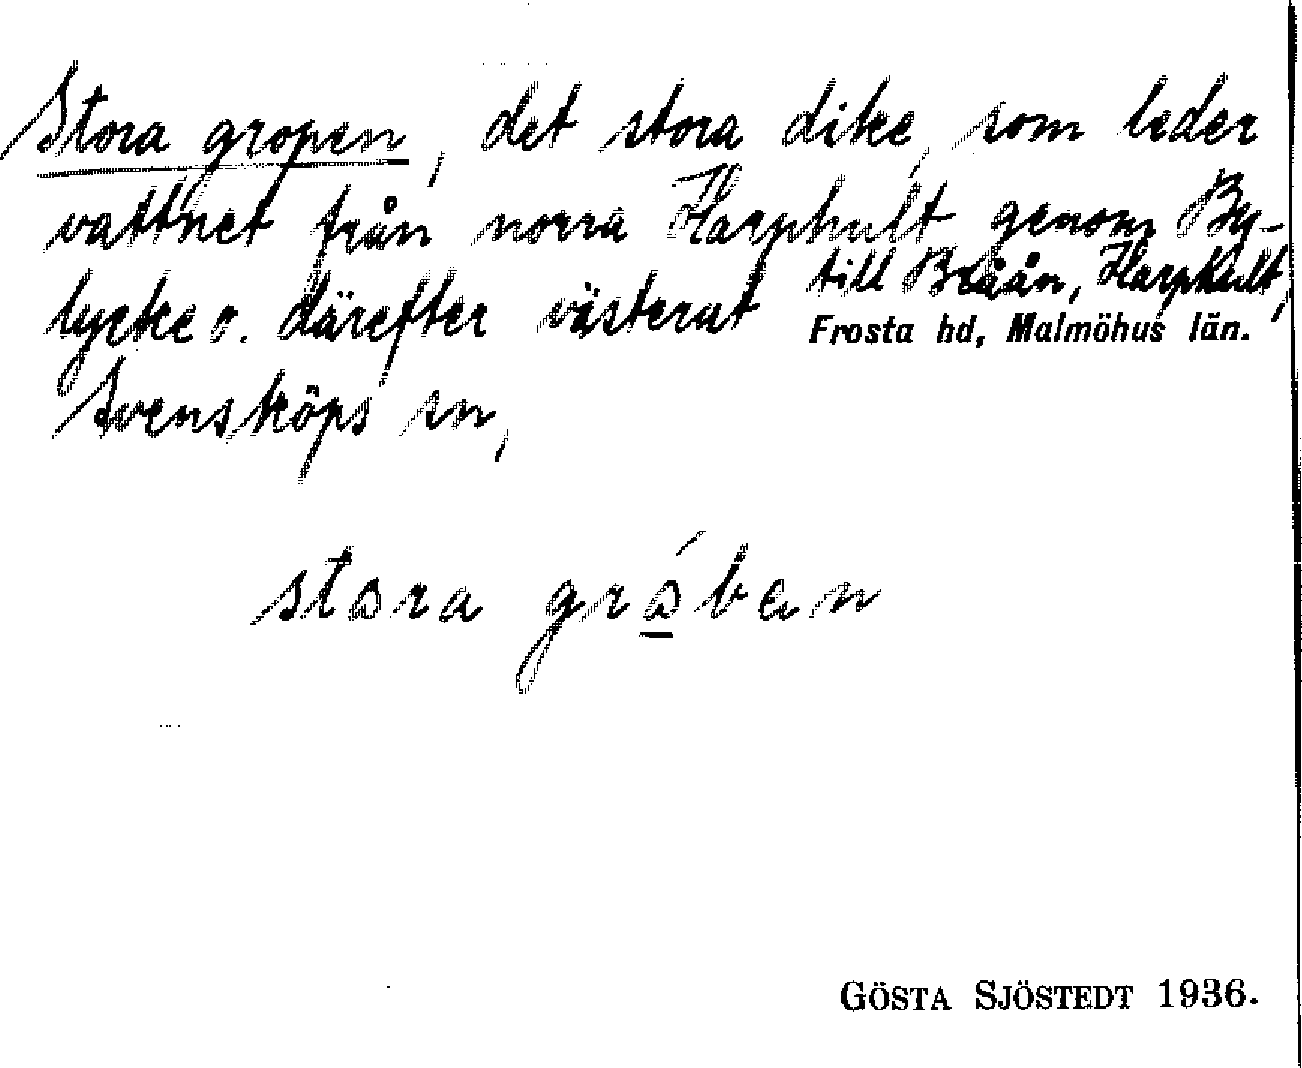 Stora gropen, det stora dike, som leder
vattnet från norra Harphult genom By-
lycke o. därefter västerut till Bråån, Harphult,
Svensköps sn, Frosta hd, Malmöhus län.
stora gråban
GÖSTA SJÖSTEDT 1936.